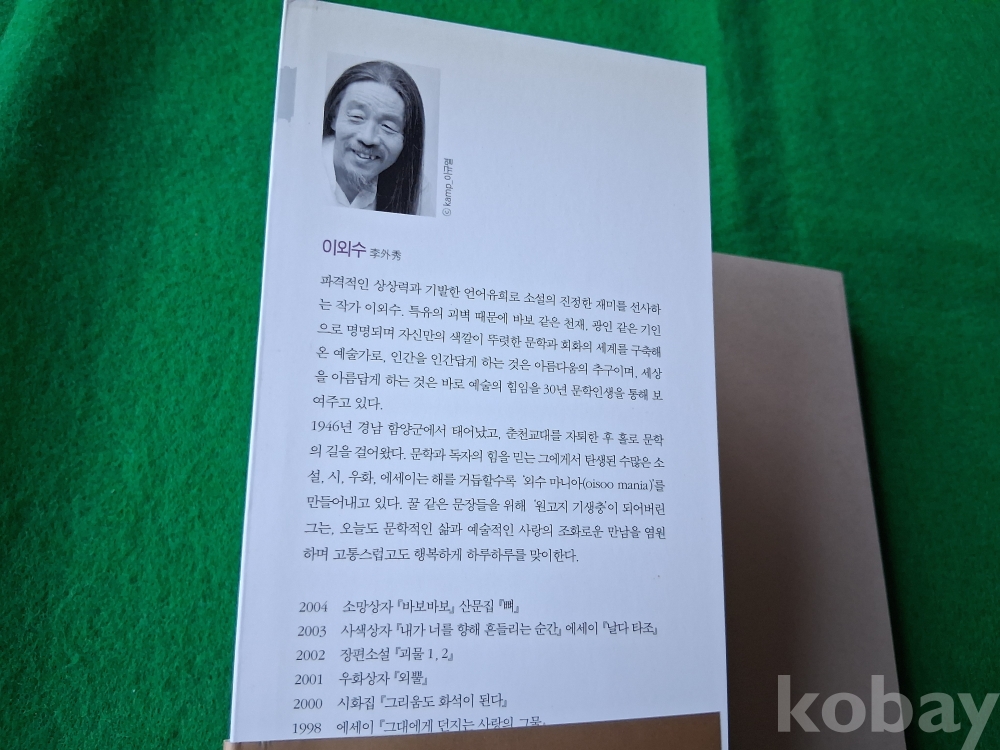 ⓒ kamp_이근별
이외수 李外秀
파격적인 상상력과 기발한 언어유희로 소설의 진정한 재미를 선사하
는 작가 이외수. 특유의 괴벽 때문에 바보 같은 천재, 광인 같은 기인
으로 명명되며 자신만의 색깔이 뚜렷한 문학과 회화의 세계를 구축해
온 예술가로, 인간을 인간답게 하는 것은 아름다움의 추구이며, 세상
을 아름답게 하는 것은 바로 예술의 힘임을 30년 문학인생을 통해 보
여주고 있다.
1946년 경남 함양군에서 태어났고, 춘천교대를 자퇴한 후 홀로 문학
의 길을 걸어왔다. 문학과 독자의 힘을 믿는 그에게서 탄생된 수많은 소
설, 시, 우화, 에세이는 해를 거듭할수록 '외수 마니아(oisoo mania)'를
만들어내고 있다. 꿀 같은 문장들을 위해 '원고지 기생충'이 되어버린
그는, 오늘도 문학적인 삶과 예술적인 사랑의 조화로운 만남을 염원
하며 고통스럽고도 행복하게 하루하루를 맞이한다.
2004 소망상자 『바보바보』 산문집 『뼈』
2003 사색상자 『내가 너를 향해 흔들리는 순간』 에세이 『날다 타조』
2002 장편소설 『괴물 1, 2』
2001 우화상자 『외뿔』
2000 시화집 『그리움도 화석이 된다』
1998 에세이 『그대에게 던지는 사랑의 그물』
kobay